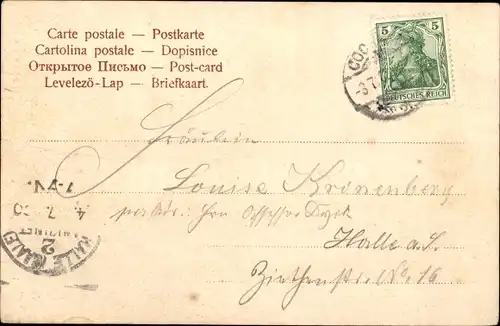 Carte postale — Postkarte
Cartolina postale — Dopisnice
Открытое Письмо — Post-card
Levelező-Lap — Briefkaart.
5 5
DEUTSCHES REICH
COC
Fräulein
Louise Kronenberg
per Adr: Herrn Assessor
Halle a. S.
Ziethenstr. No. 16
HALLE (SAALE)
2